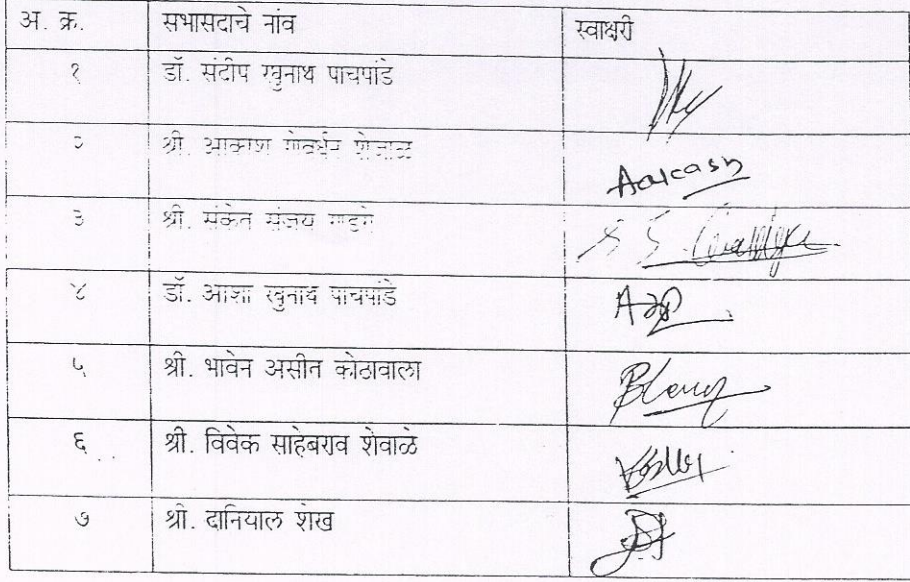 अ. क्र. सभासदाचे नांव स्वाक्षरी
१ डॉ. संदीप रघुनाथ पाचपांडे
२ श्री. आकाश गोवर्धन शेवाळे Aakash
३ श्री. संकेत संजय गाडगे
४ डॉ. आशा रघुनाथ पाचपांडे
५ श्री. भावेन असीत कोठावाला
६ श्री. विवेक साहेबराव शेवाळे
७ श्री. दानियाल शेख